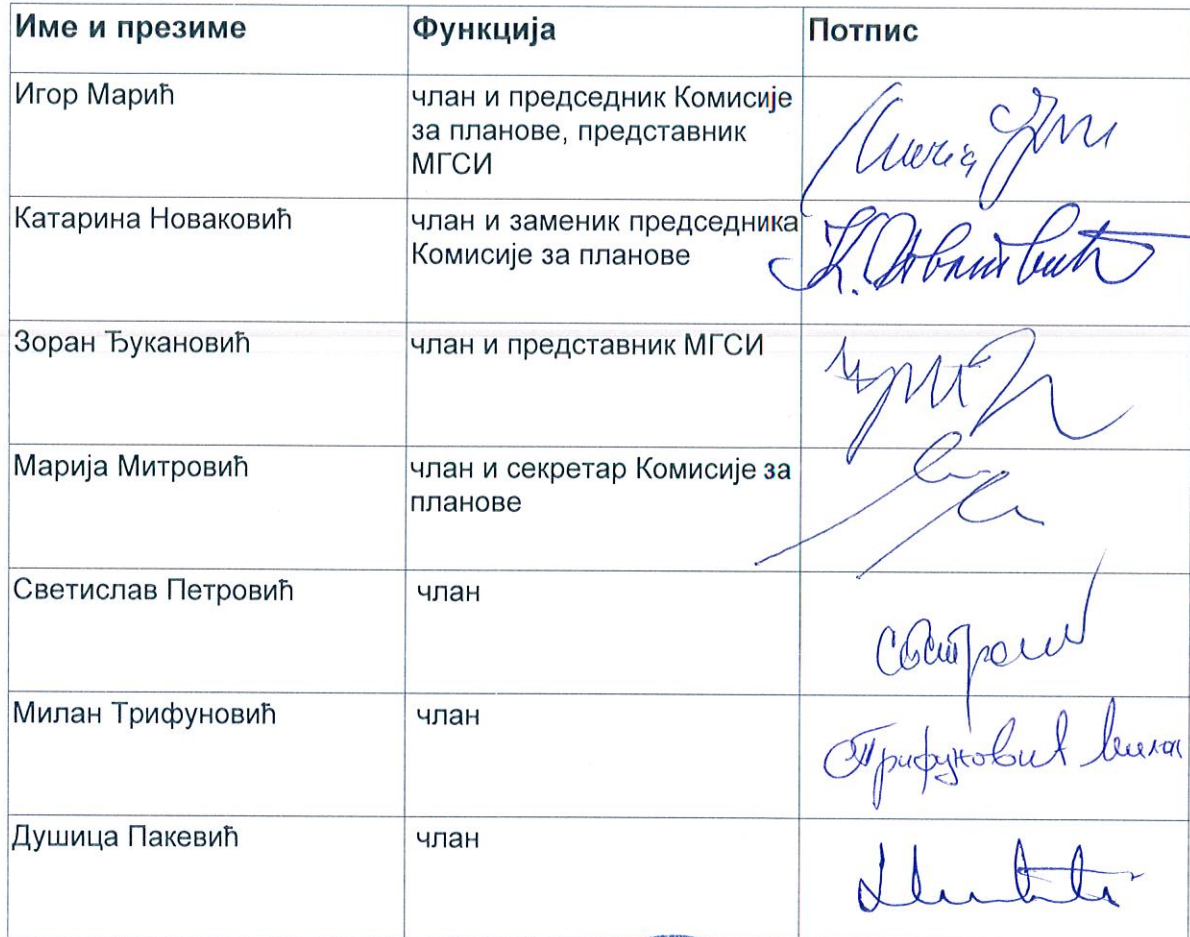 Име и презиме Функција Потпис
Игор Марић члан и председник Комисије
за планове, представник
МГСИ
Катарина Новаковић члан и заменик председника
Комисије за планове
К. Новаковић
Зоран Ђукановић члан и представник МГСИ
Марија Митровић члан и секретар Комисије за
планове
Светислав Петровић члан
Милан Трифуновић члан
Трифуновић Милан
Душица Пакевић члан